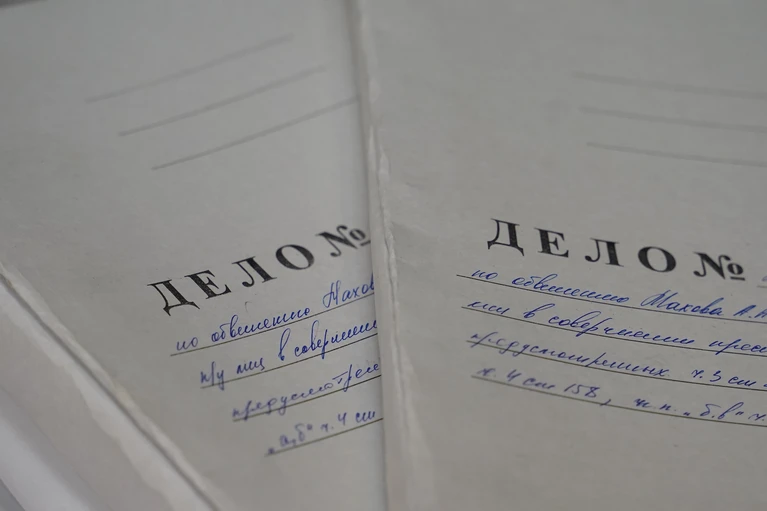 ДЕЛО №
по обвинению Махов
п/у лиц в совершении
предусмотрен
„а,б“ ч. 4 ст
ДЕЛО №
по обвинению Махова А.А
лиц в совершении прес
предусмотренных ч. 3 ст.
ч. 4 ст 158, п.п. „б,в“ ч.